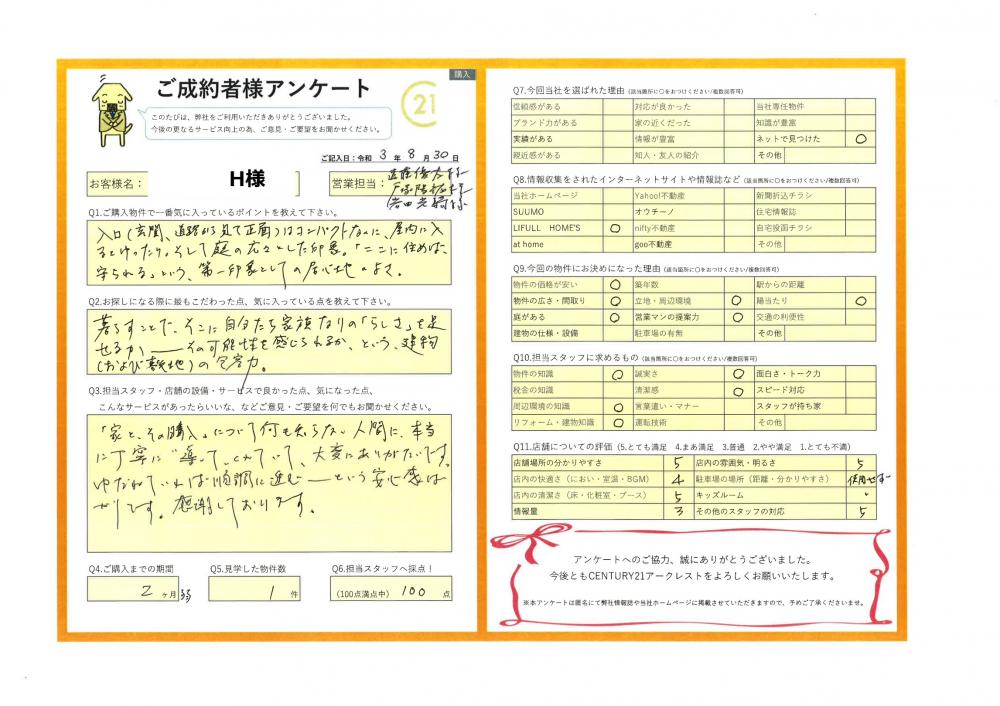 購入
ご成約者様アンケート
21
このたびは、弊社をご利用いただきありがとうございました。
今後の更なるサービス向上の為、ご意見・ご要望をお聞かせください。
ご記入日：令和 3 年 8 月 30 日
お客様名： H様
営業担当：
Q1.ご購入物件で一番気に入っているポイントを教えて下さい。
入口（玄関、道路から見て正面）はコンパクトなのに、屋内に入
るとゆったり。そして庭の広々とした印象。「ここに住めば、
守られる」という、第一印象としての居心地のよさ。
Q2.お探しになる際に最もこだわった点、気に入っている点を教えて下さい。
暮らすことで、そこに自分たち家族なりの「らしさ」を足
せるか――その可能性を感じられるか、という、建物
（および敷地）の包容力。
Q3.担当スタッフ・店舗の設備・サービスで良かった点、気になった点、
こんなサービスがあったらいいな、などご意見・ご要望を何でもお聞かせください。
「家と、その購入」について何も知らない人間に、本当
に丁寧に“導いて”くれていて、大変にありがたいです。
ゆだねていれば順調に進む――という安心感ば
かりです。感謝しております。
Q4.ご購入までの期間
2 ヶ月弱
Q5.見学した物件数
1 件
Q6.担当スタッフへ採点！
(100点満点中) 100 点
Q7.今回当社を選ばれた理由 (該当箇所に○をおつけください/複数回答可)
信頼感がある 対応が良かった 当社専任物件
ブランド力がある 家の近くだった 知識が豊富
実績がある 情報が豊富 ネットで見つけた ○
親近感がある 知人・友人の紹介 その他
Q8.情報収集をされたインターネットサイトや情報誌など (該当箇所に○をおつけください/複数回答可)
当社ホームページ Yahoo!不動産 新聞折込チラシ
SUUMO オウチーノ 住宅情報誌
LIFULL HOME'S ○ nifty不動産 自宅投函チラシ
at home goo不動産 その他
Q9.今回の物件にお決めになった理由 (該当箇所に○をおつけください/複数回答可)
物件の価格が安い ○ 築年数 駅からの距離
物件の広さ・間取り ○ 立地・周辺環境 ○ 陽当たり ○
庭がある ○ 営業マンの提案力 ○ 交通の利便性
建物の仕様・設備 駐車場の有無 その他
Q10.担当スタッフに求めるもの (該当箇所に○をおつけください/複数回答可)
物件の知識 ○ 誠実さ ○ 面白さ・トーク力
税金の知識 清潔感 ○ スピード対応
周辺環境の知識 ○ 言葉遣い・マナー スタッフが持ち家
リフォーム・建物知識 ○ 運転技術 その他
Q11.店舗についての評価 (5.とても満足 4.まあ満足 3.普通 2.やや満足 1.とても不満)
店舗場所の分かりやすさ 5 店内の雰囲気・明るさ 5
店内の快適さ（におい・室温・BGM） 4 駐車場の場所（距離・分かりやすさ） 使用せず
店内の清潔さ（床・化粧室・ブース） 5 キッズルーム 〃
情報量 3 その他のスタッフの対応 5
アンケートへのご協力、誠にありがとうございました。
今後ともCENTURY21アークレストをよろしくお願いいたします。
※本アンケートは匿名にて弊社情報誌や当社ホームページに掲載させていただきますので、予めご了承くださいませ。